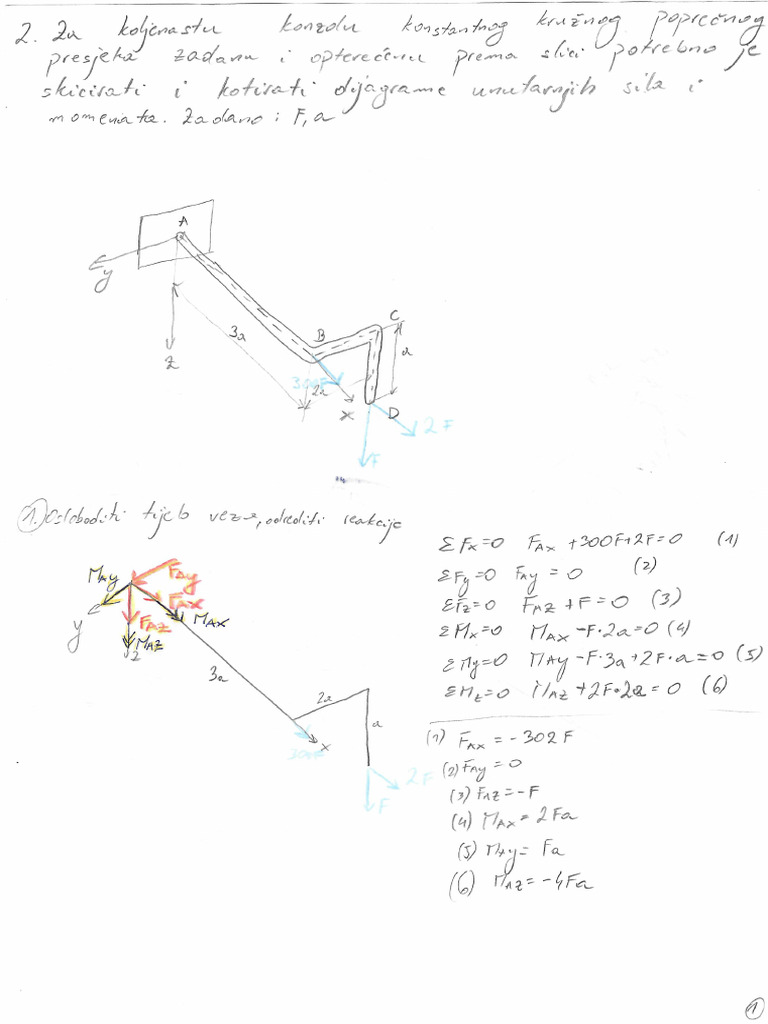 2. Za koljenastu konzolu konstantnog kružnog poprečnog
presjeka zadanu i opterećenu prema slici potrebno je
skicirati i kotirati dijagrame unutarnjih sila i
momenata. Zadano: F, a
A
y
z
3a
B
C
a
300F
2a
x
D
2F
F
1. Osloboditi tijelo veza, odrediti reakcije
ΣFx=0 FAx +300F+2F=0 (1)
ΣFy=0 FAy = 0 (2)
ΣFz=0 FAz + F = 0 (3)
ΣMx=0 MAx -F·2a=0 (4)
ΣMy=0 MAy -F·3a+2F·a=0 (5)
ΣMz=0 MAz +2F·2a=0 (6)
MAy
FAy
FAx
MAx
FAz
y
MAz
z
3a
2a
a
300F
x
2F
F
(1) FAx = -302F
(2) FAy = 0
(3) FAz = -F
(4) MAx = 2Fa
(5) MAy = Fa
(6) MAz = -4Fa
1